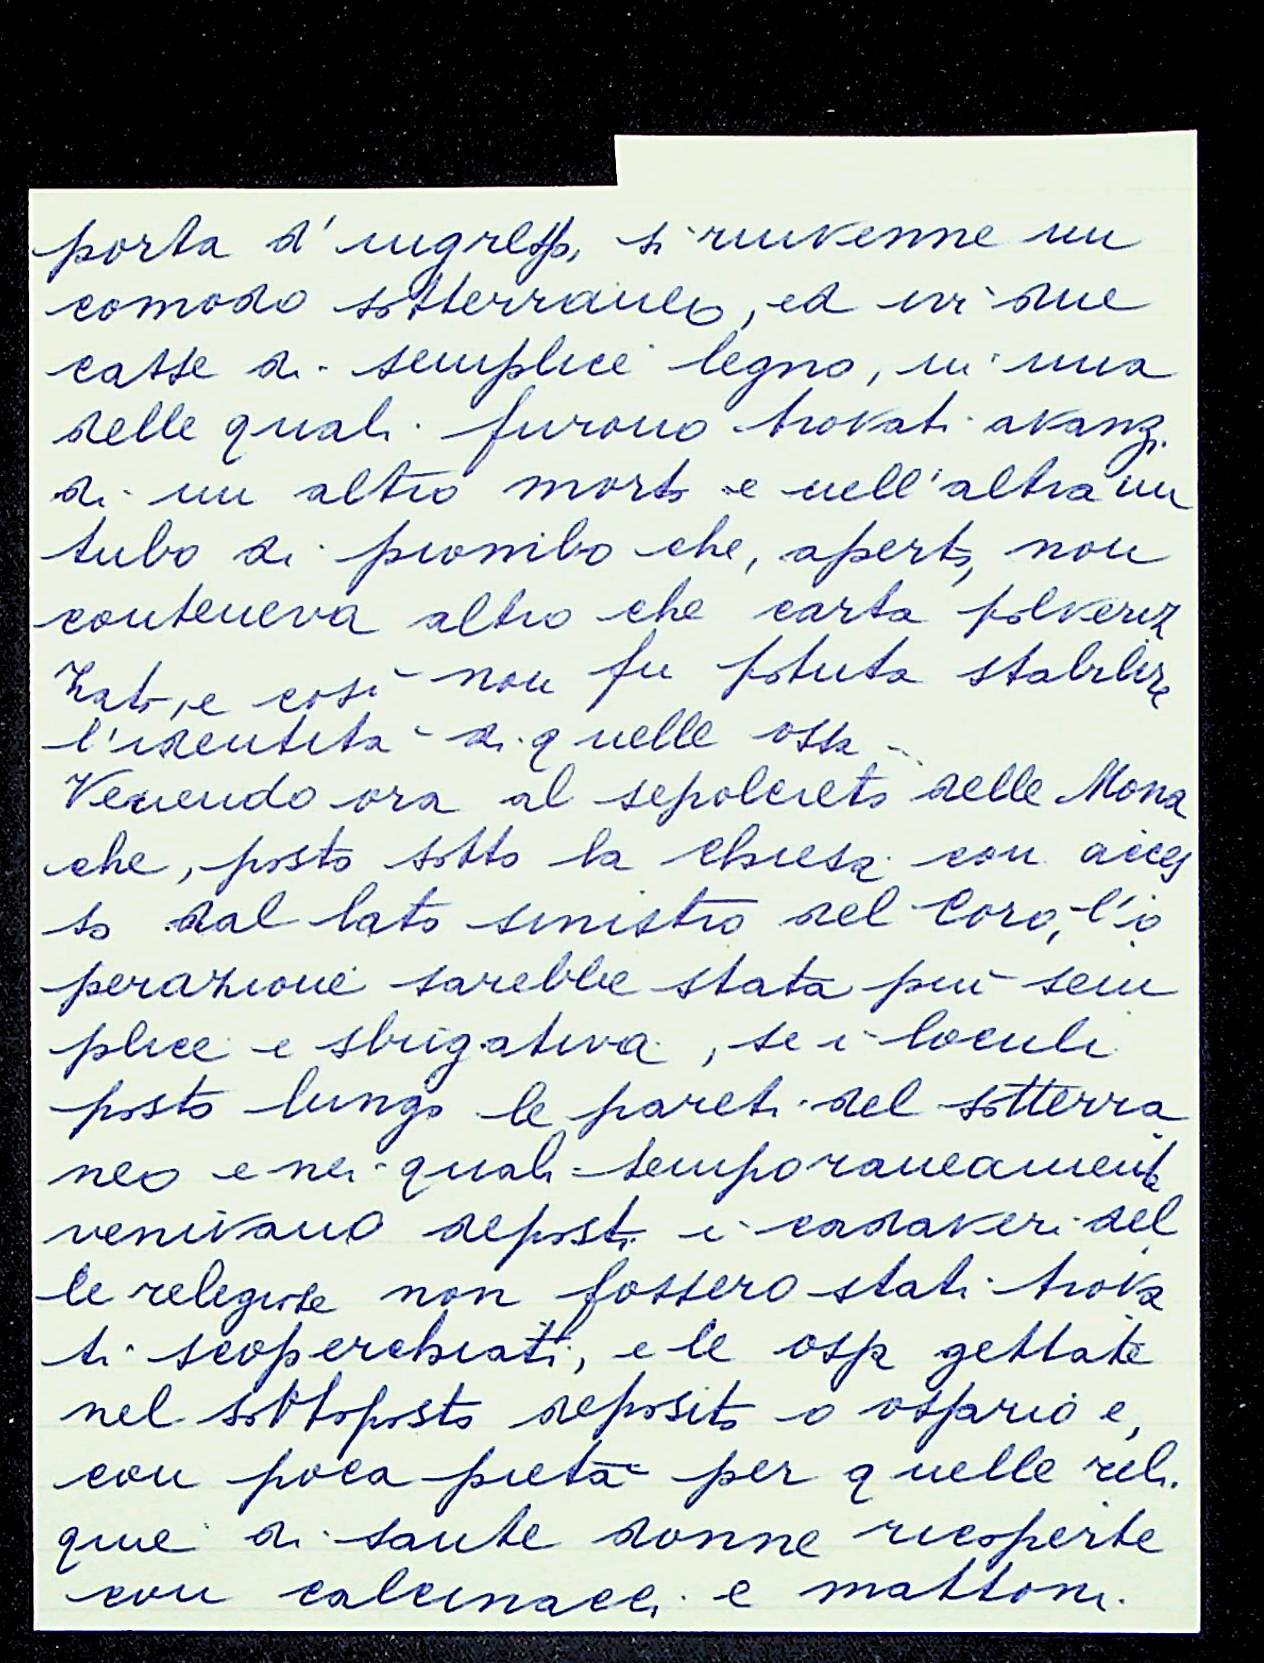 porta d'ingresso, si rinvenne un
comodo sotterraneo, ed ivi due
casse di semplice legno, in una
delle quali furono trovati avanzi
di un altro morto e nell'altra un
tubo di piombo che, aperto, non
conteneva altro che carta polveriz
zata, e così non fu potuta stabilire
l'identità di quelle ossa.
Venendo ora al sepolcreto delle Mona
che, posto sotto la Chiesa con acces
so dal lato sinistro del Coro, l'o
perazione sarebbe stata più sem
plice e sbrigativa, se i loculi
posto lungo le pareti del sotterra
neo e nei quali temporaneamente
venivano deposti i cadaveri del
le religiose non fossero stati trova
ti scoperchiati, e le ossa gettate
nel sottoposto deposito o ossario e,
con poca pietà per quelle reli
quie di sante donne ricoperte
con calcinacci e mattoni.